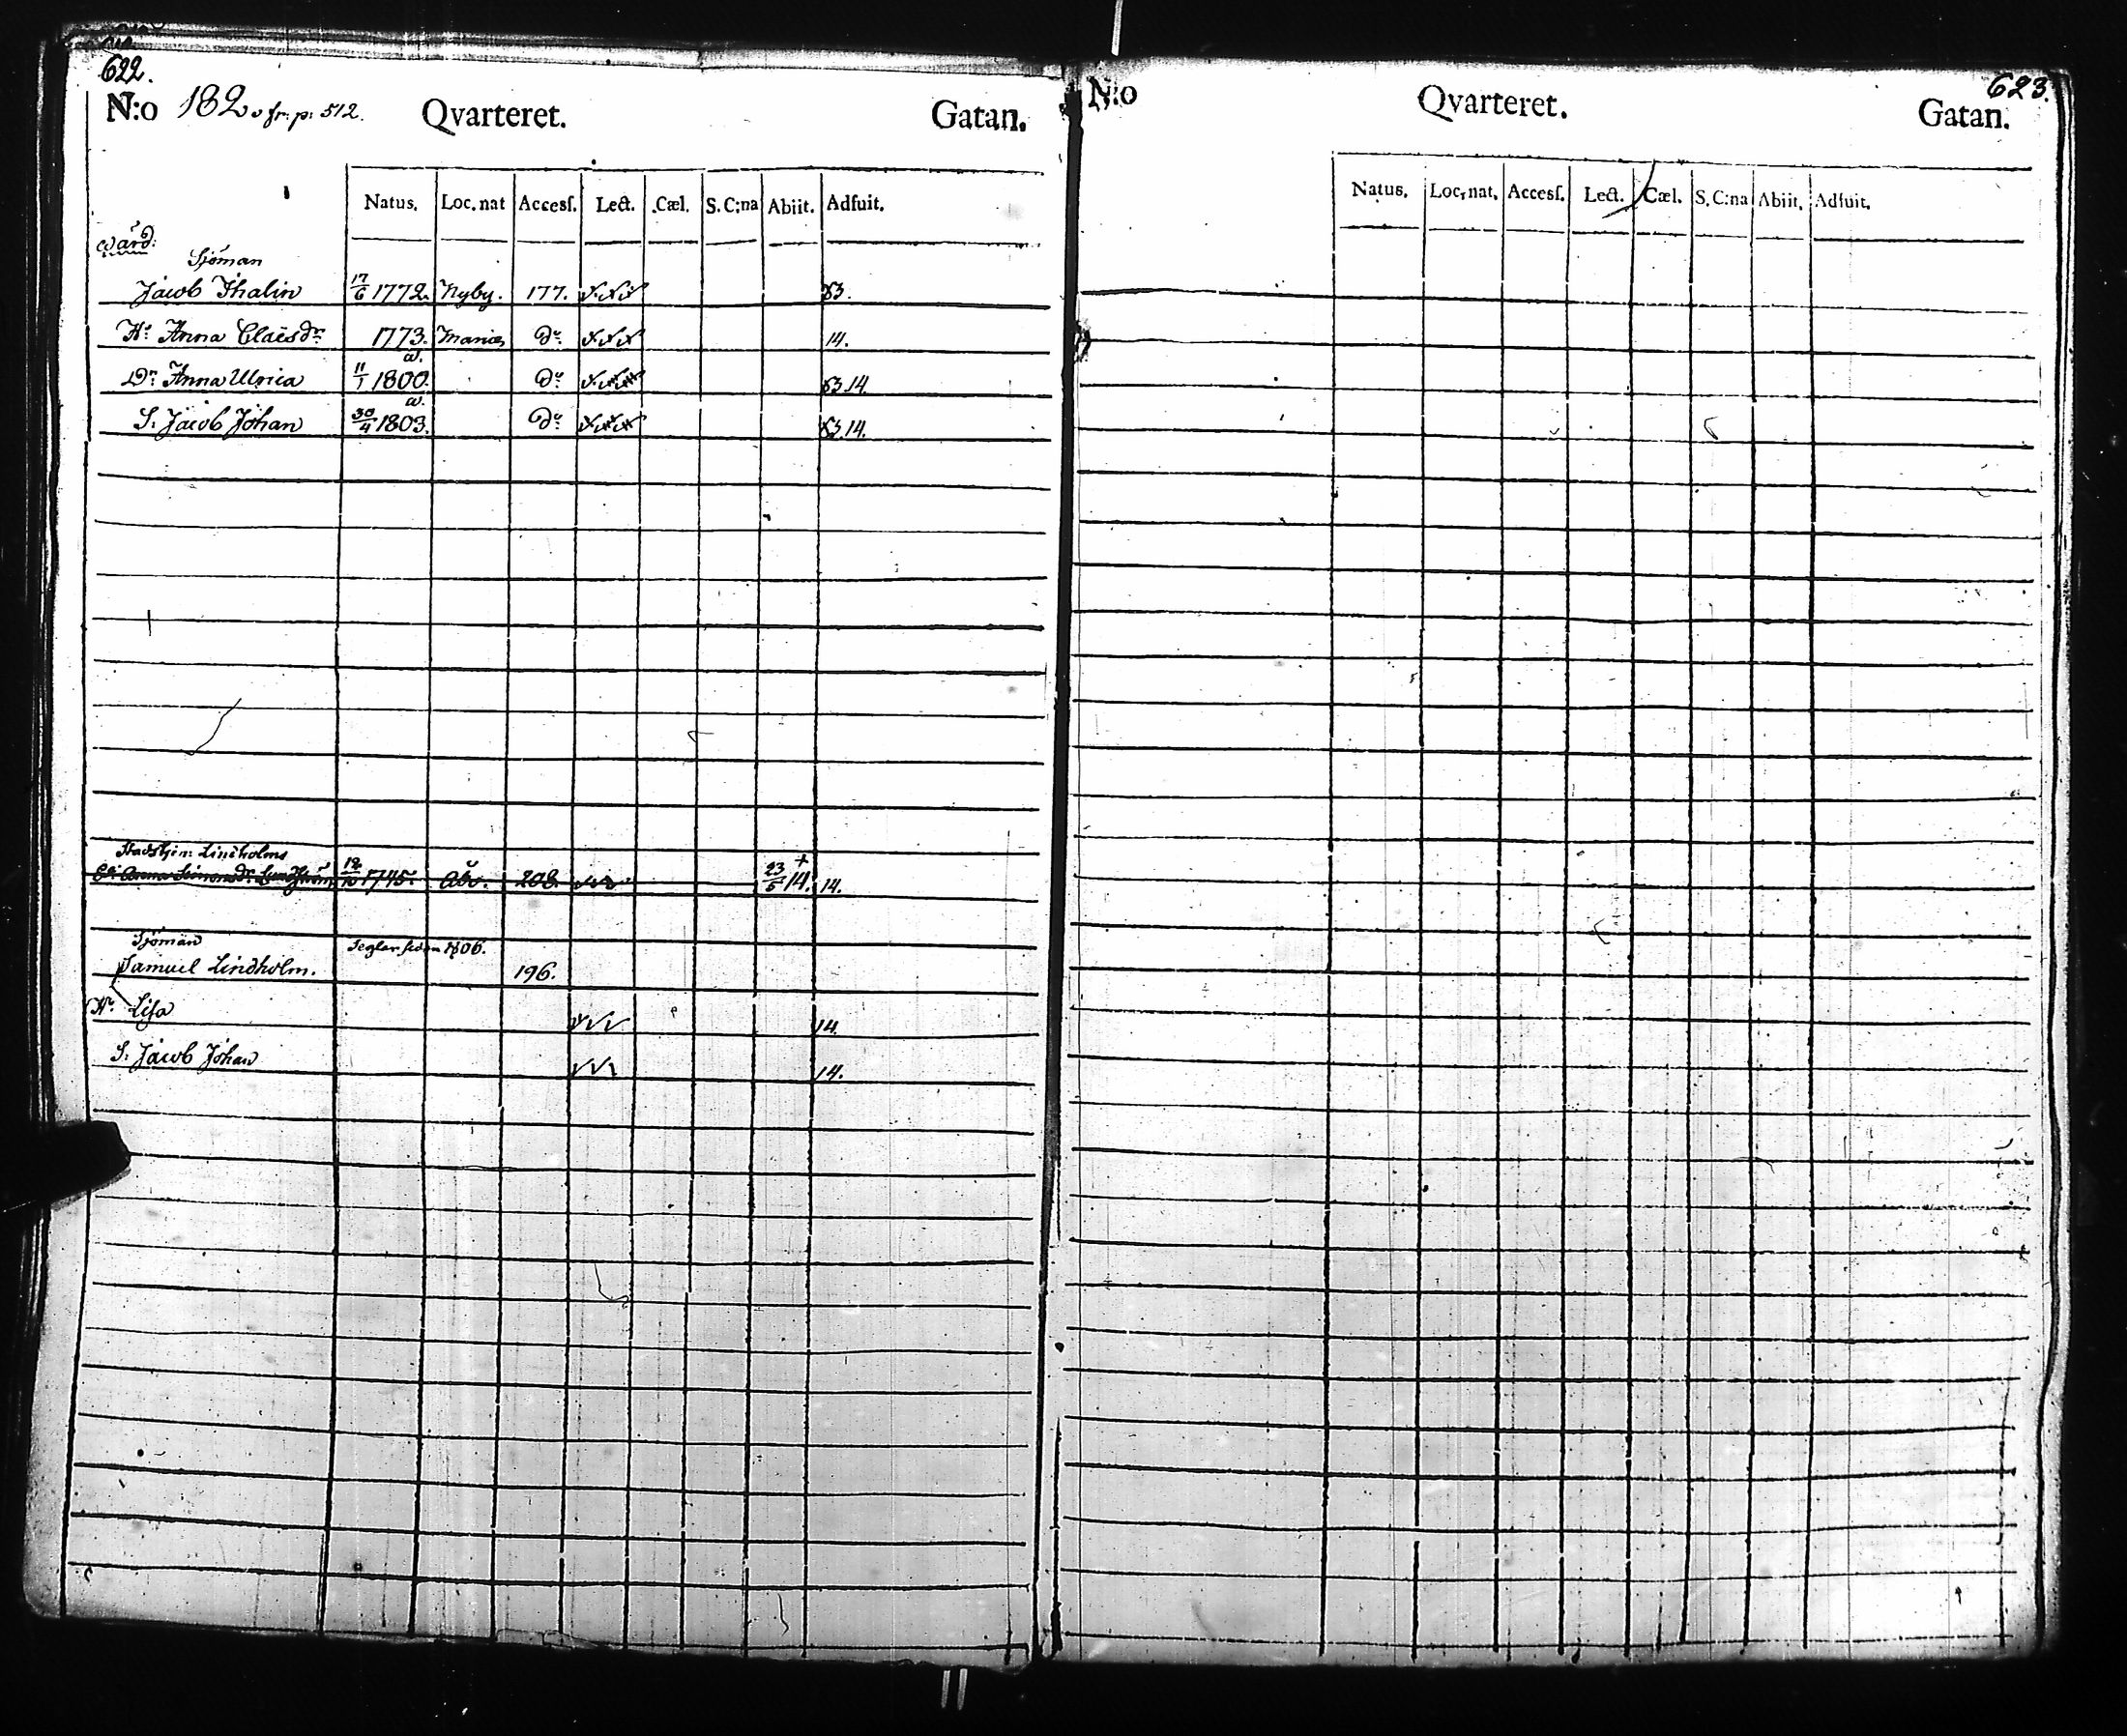 622.
N:o 182 fr: p: 512. Qvarteret. Gatan.
Natus. Loc. nat Accesſ. Lect. Cæl. S. C:na Abiit. Adfuit.
Wärd:
Sjöman
Jacob Thalin 17/6 1772. Nyby. 177. 13.
Hu Anna Claësdr 1773. Mariæ, do 14.
Dr Anna Ulrica 11/1 1800. do 13 14.
S. Jacob Johan 30/4 1803. do 13 14.
Stadstjen: Lindholms
Anna Simonsdr 1745. Åbo. 208. 23/5 14. + 14.
Sjöman Seglar sedan 1806.
Samuel Lindholm. 196.
Hu Lisa 14.
S. Jacob Johan 14.
623.
N:o Qvarteret. Gatan.
Natus. Loc. nat. Accesſ. Lect. Cæl. S. C:na Abiit. Adfuit.